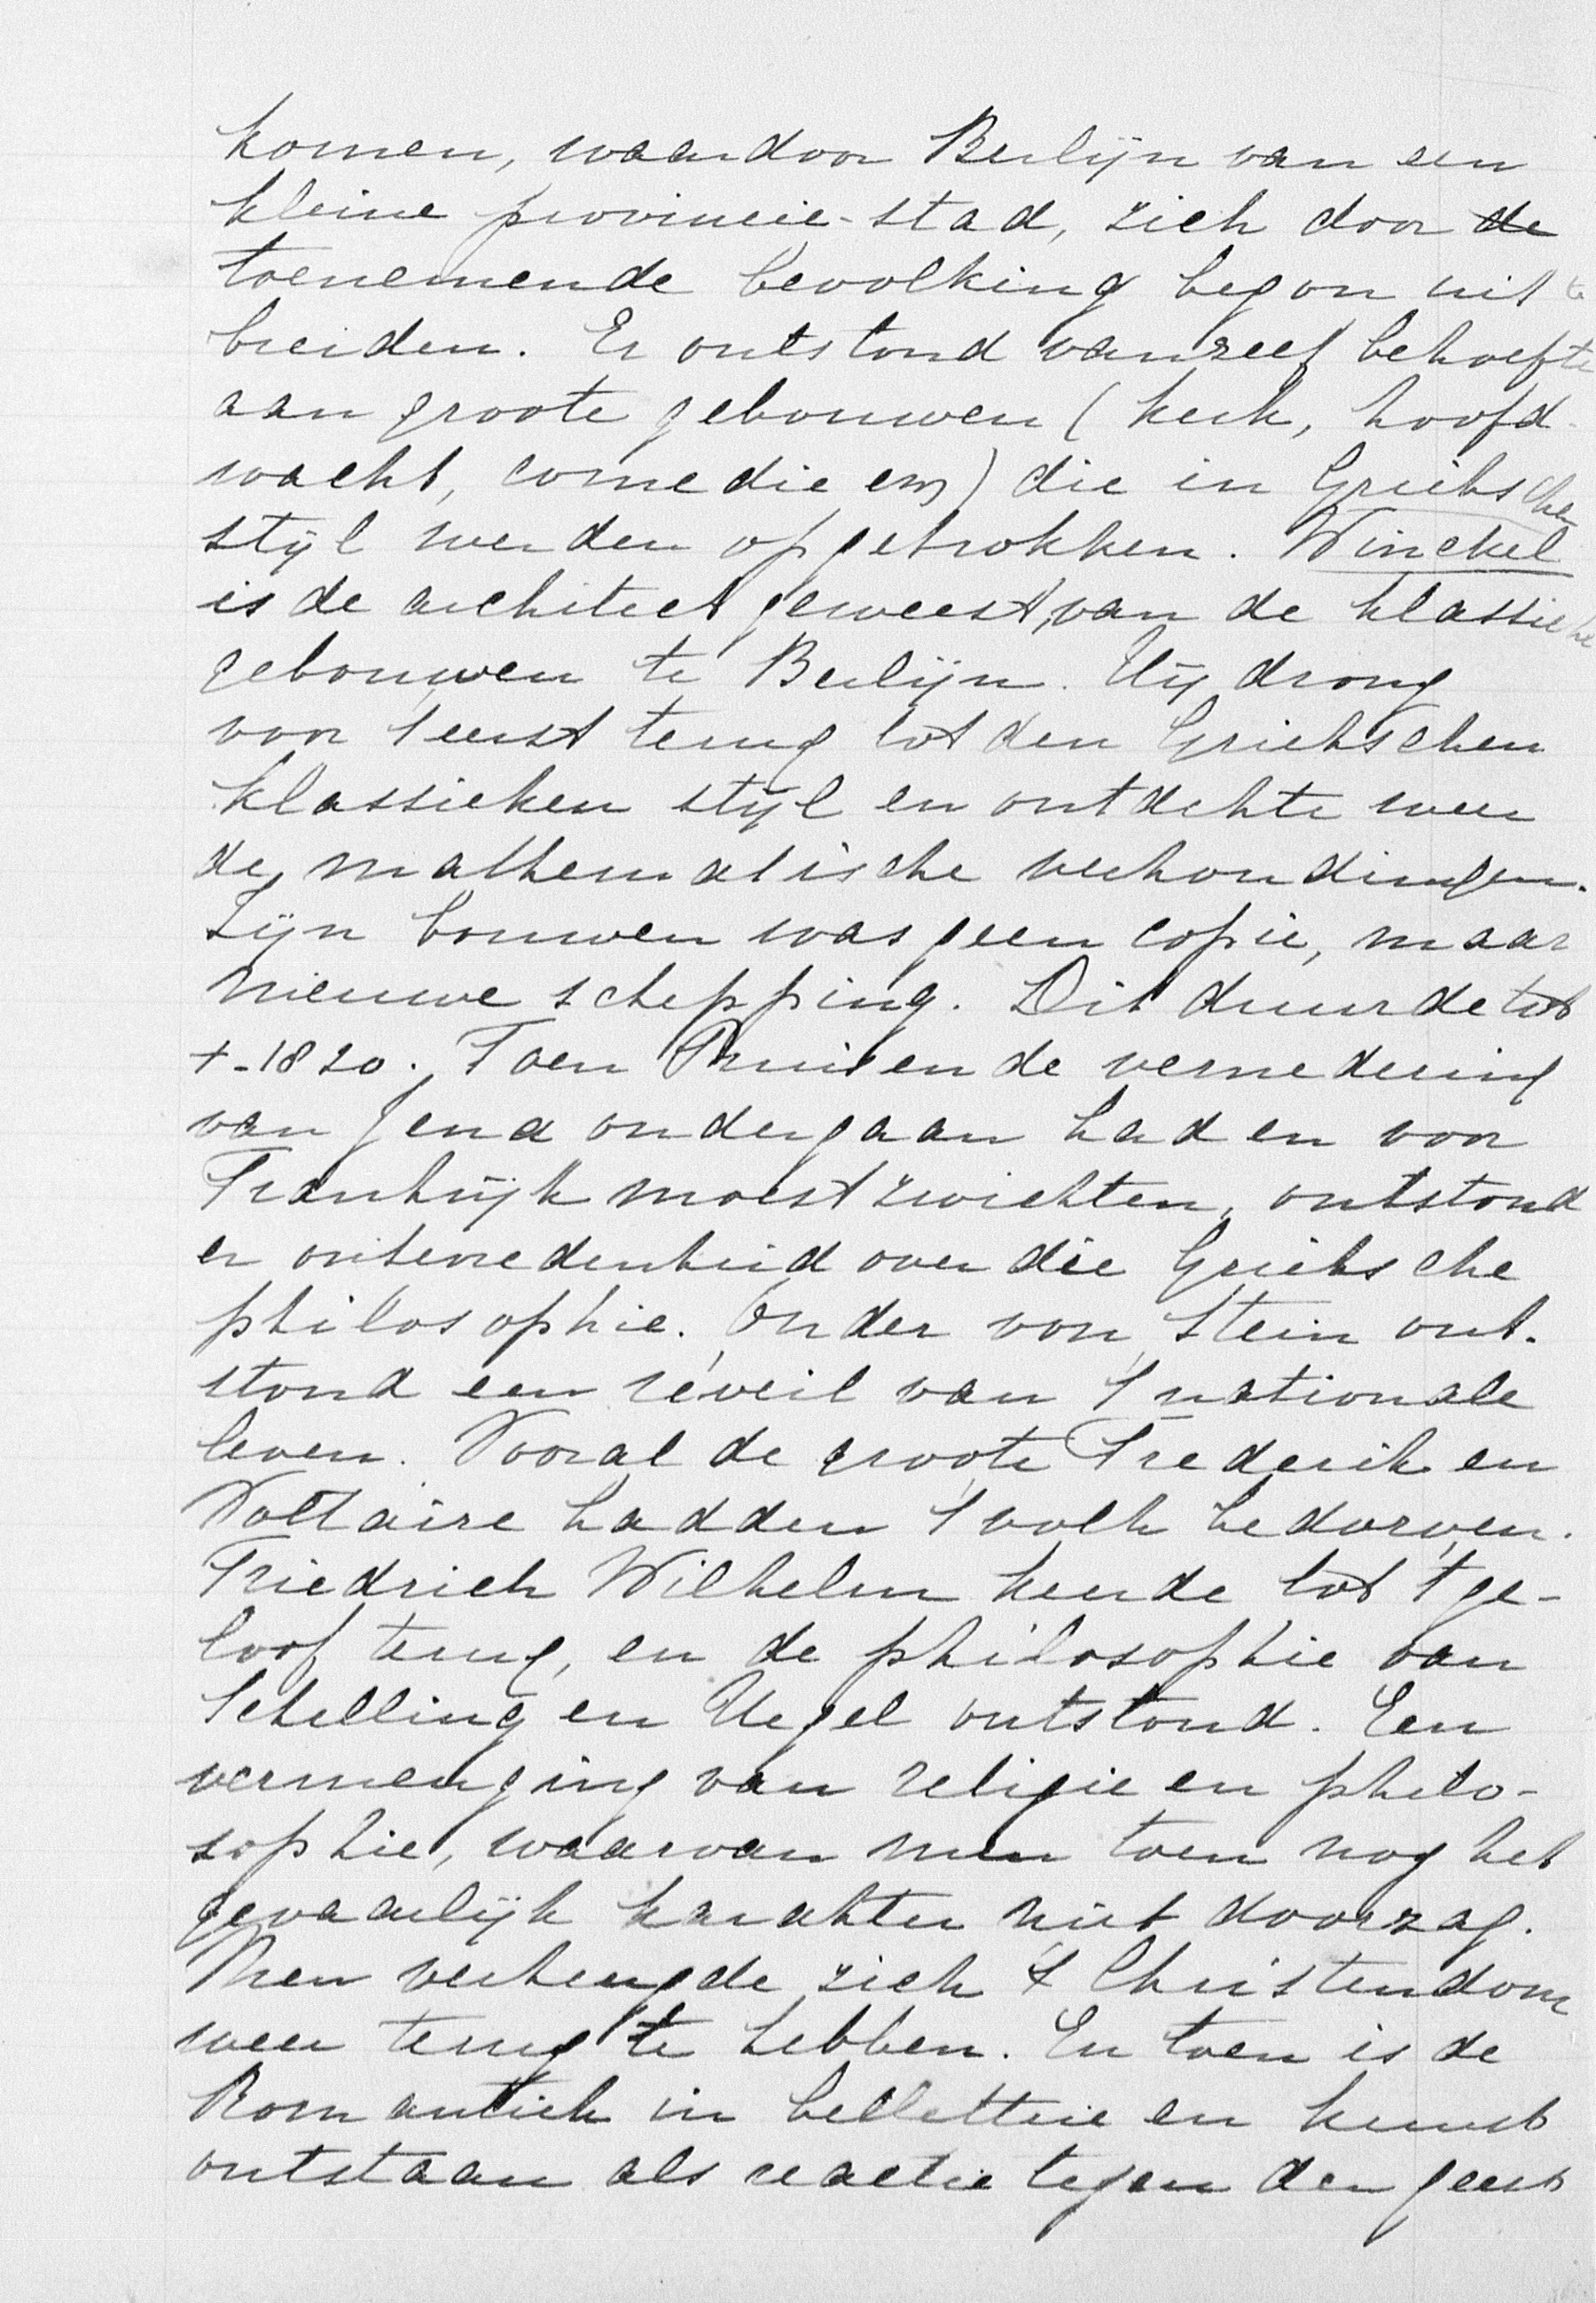 komen, waardoor Berlijn van een
kleine provincie-stad, zich door de
toenemende bevolking begon uit te
breiden. Er ontstond vanzelf behoefte
aan groote gebouwen (kerk, hoofd-
wacht, comedie enz) die in Griekschen
stijl werden opgetrokken. Winckel
is de architect geweest, van de klassieke
gebouwen te Berlijn. Hij drong
voor 't eerst terug tot den Griekschen
klassieken stijl en ontdekte weer
de mathematische verhoudingen.
Zijn bouwen was geen copie, maar
nieuwe schepping. Dit duurde tot
+-1820. Toen Pruisen de vernedering
van Jena ondergaan had en voor
Frankrijk moest zwichten, ontstond
er ontevredenheid over die Grieksche
philosophie. Onder von Stein ont-
stond een réveil van 't nationale
leven. Vooral de groote Frederik en
Voltaire hadden 't volk bedorven.
Friedrich Wilhelm keerde tot 't ge-
loof terug, en de philosophie van
Schelling en Hegel ontstond. Een
vermenging van religie en philo-
sophie, waarvan men toen nog het
gevaarlijk karakter niet doorzag.
Men verheugde zich 't Christendom
weer terug te hebben. En toen is de
Romantiek in bellettrie en kunst
ontstaan als reactie tegen den geest